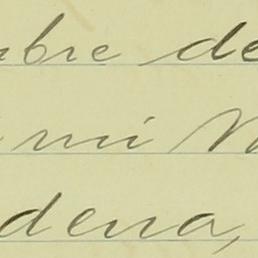 bre de
mi
dena,